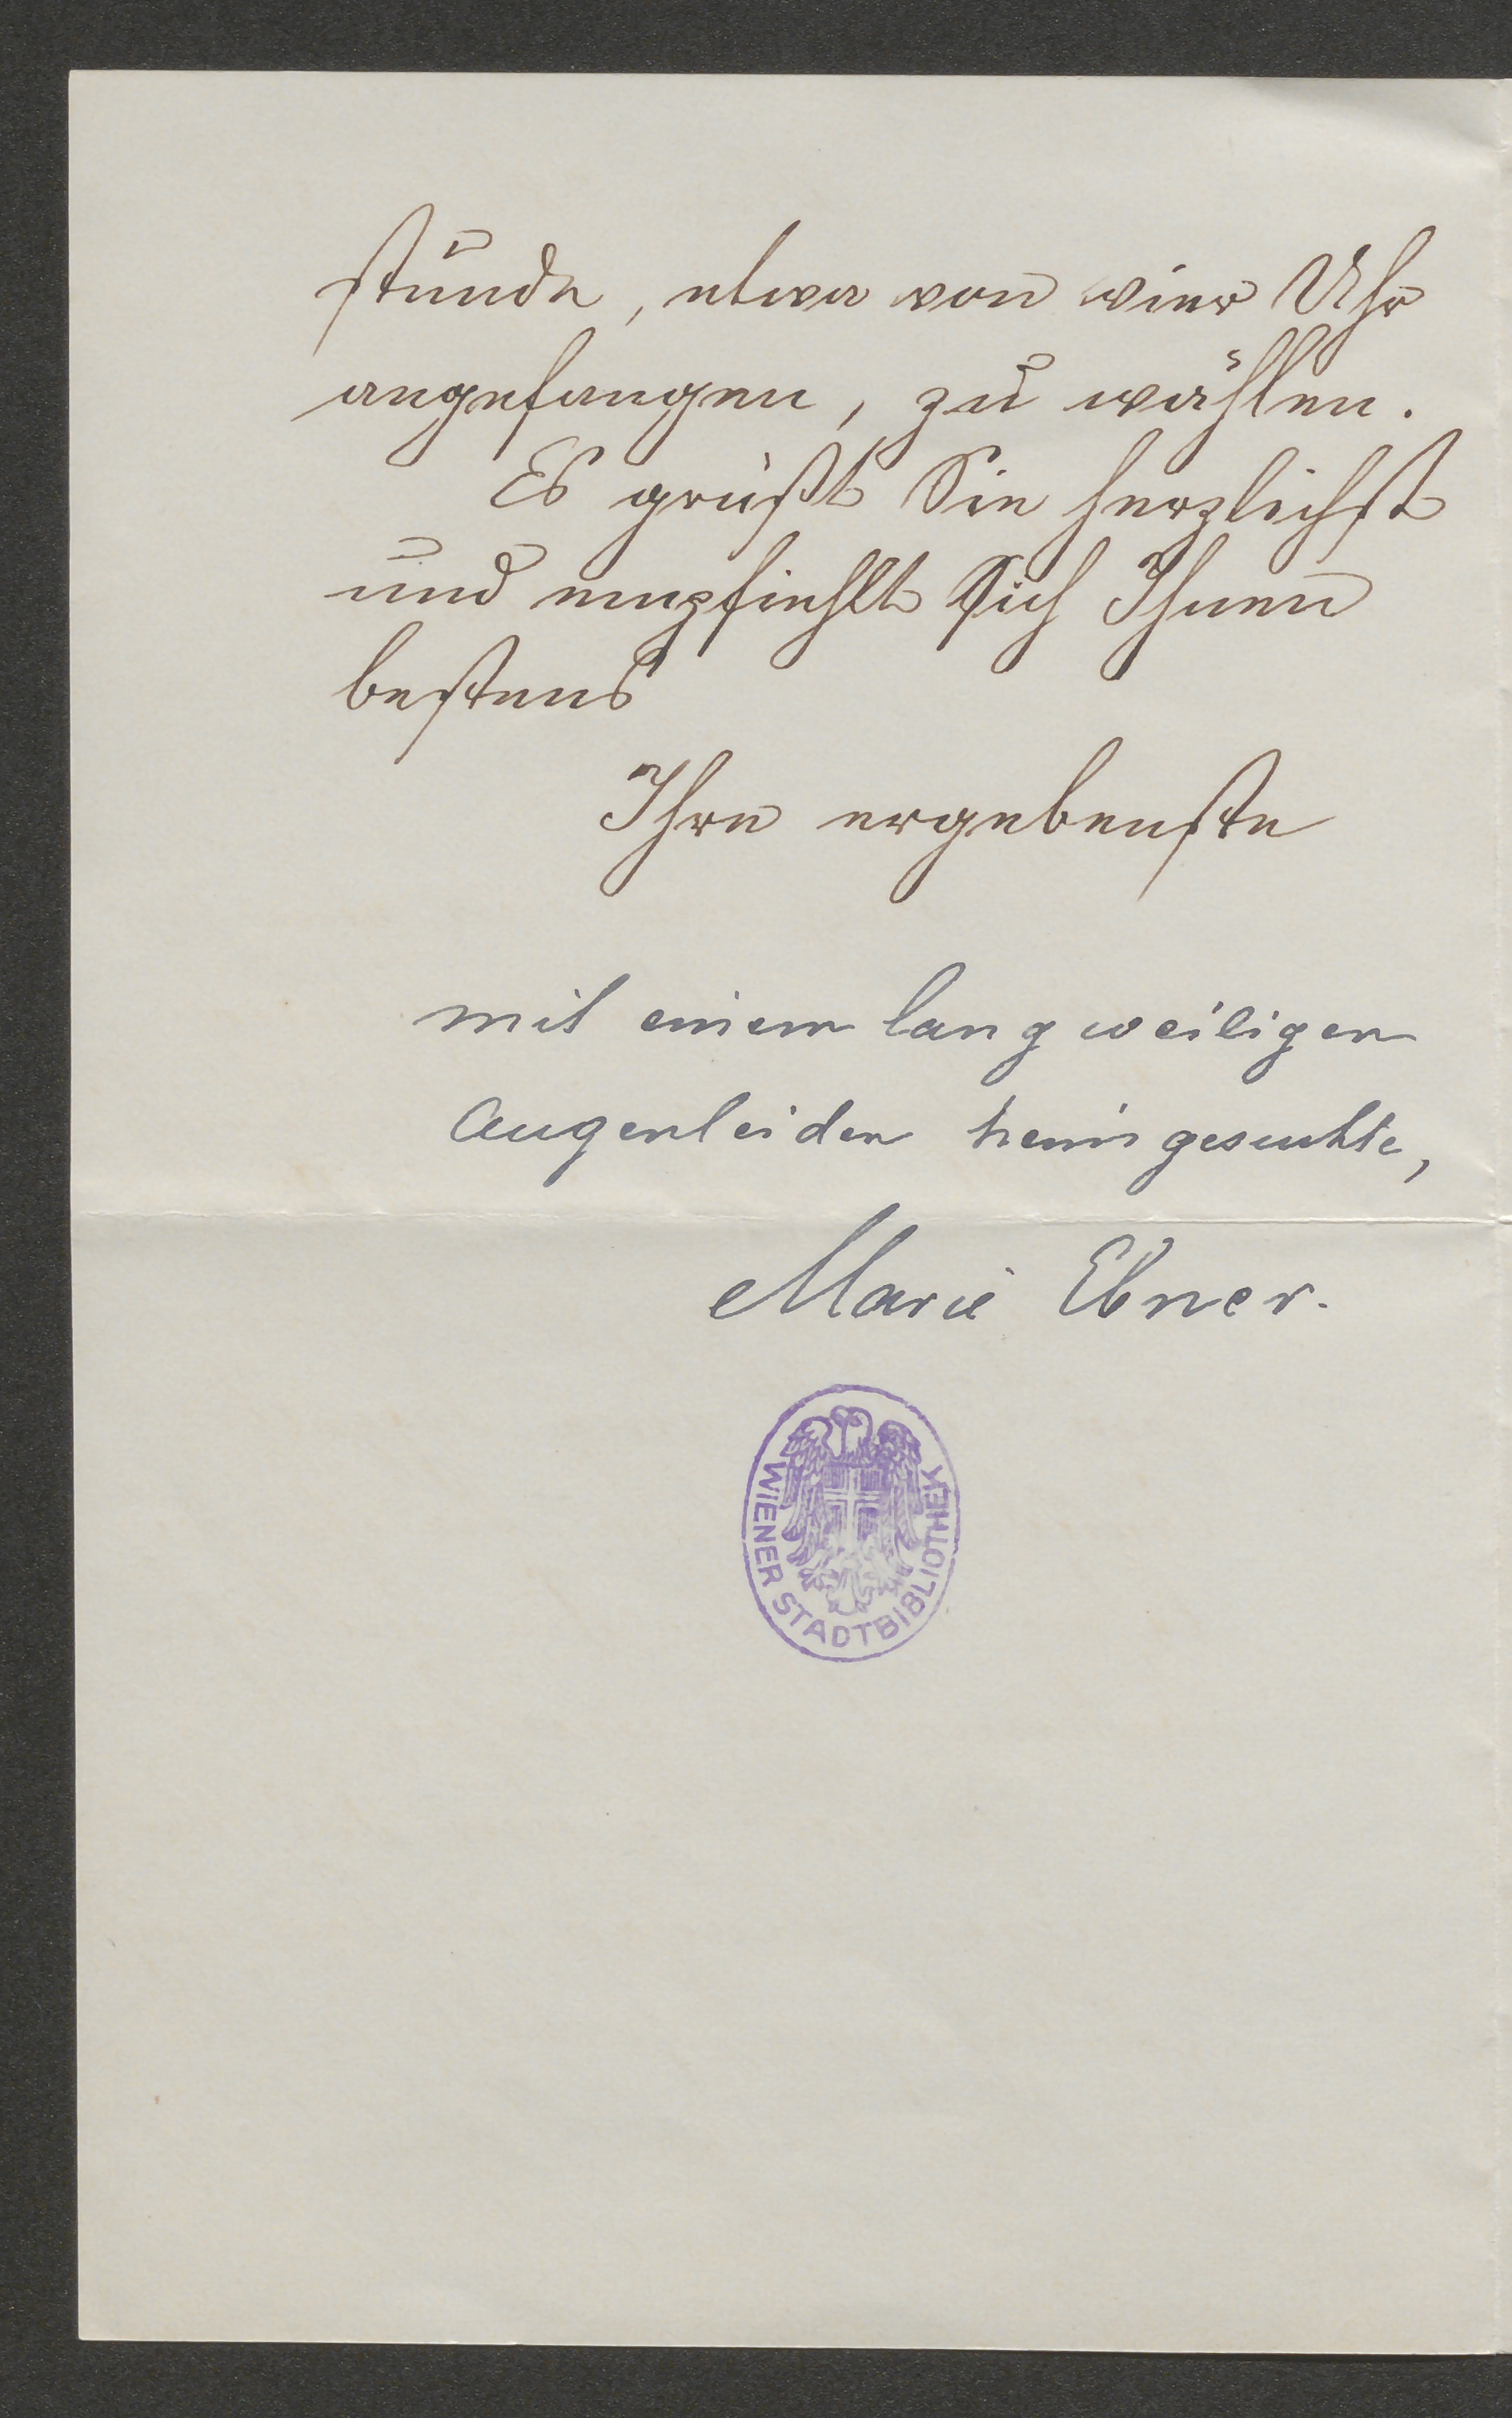 stunde, etwa von vier Uhr
angefangen, zu wählen.
Es grüßt Sie herzlichst
und empfiehlt sich Ihnen
bestens
Ihre ergebenste
mit einem langweiligen
Augenleiden heimgesuchte,
Marie Ebner.
WIENER STADTBIBLIOTHEK